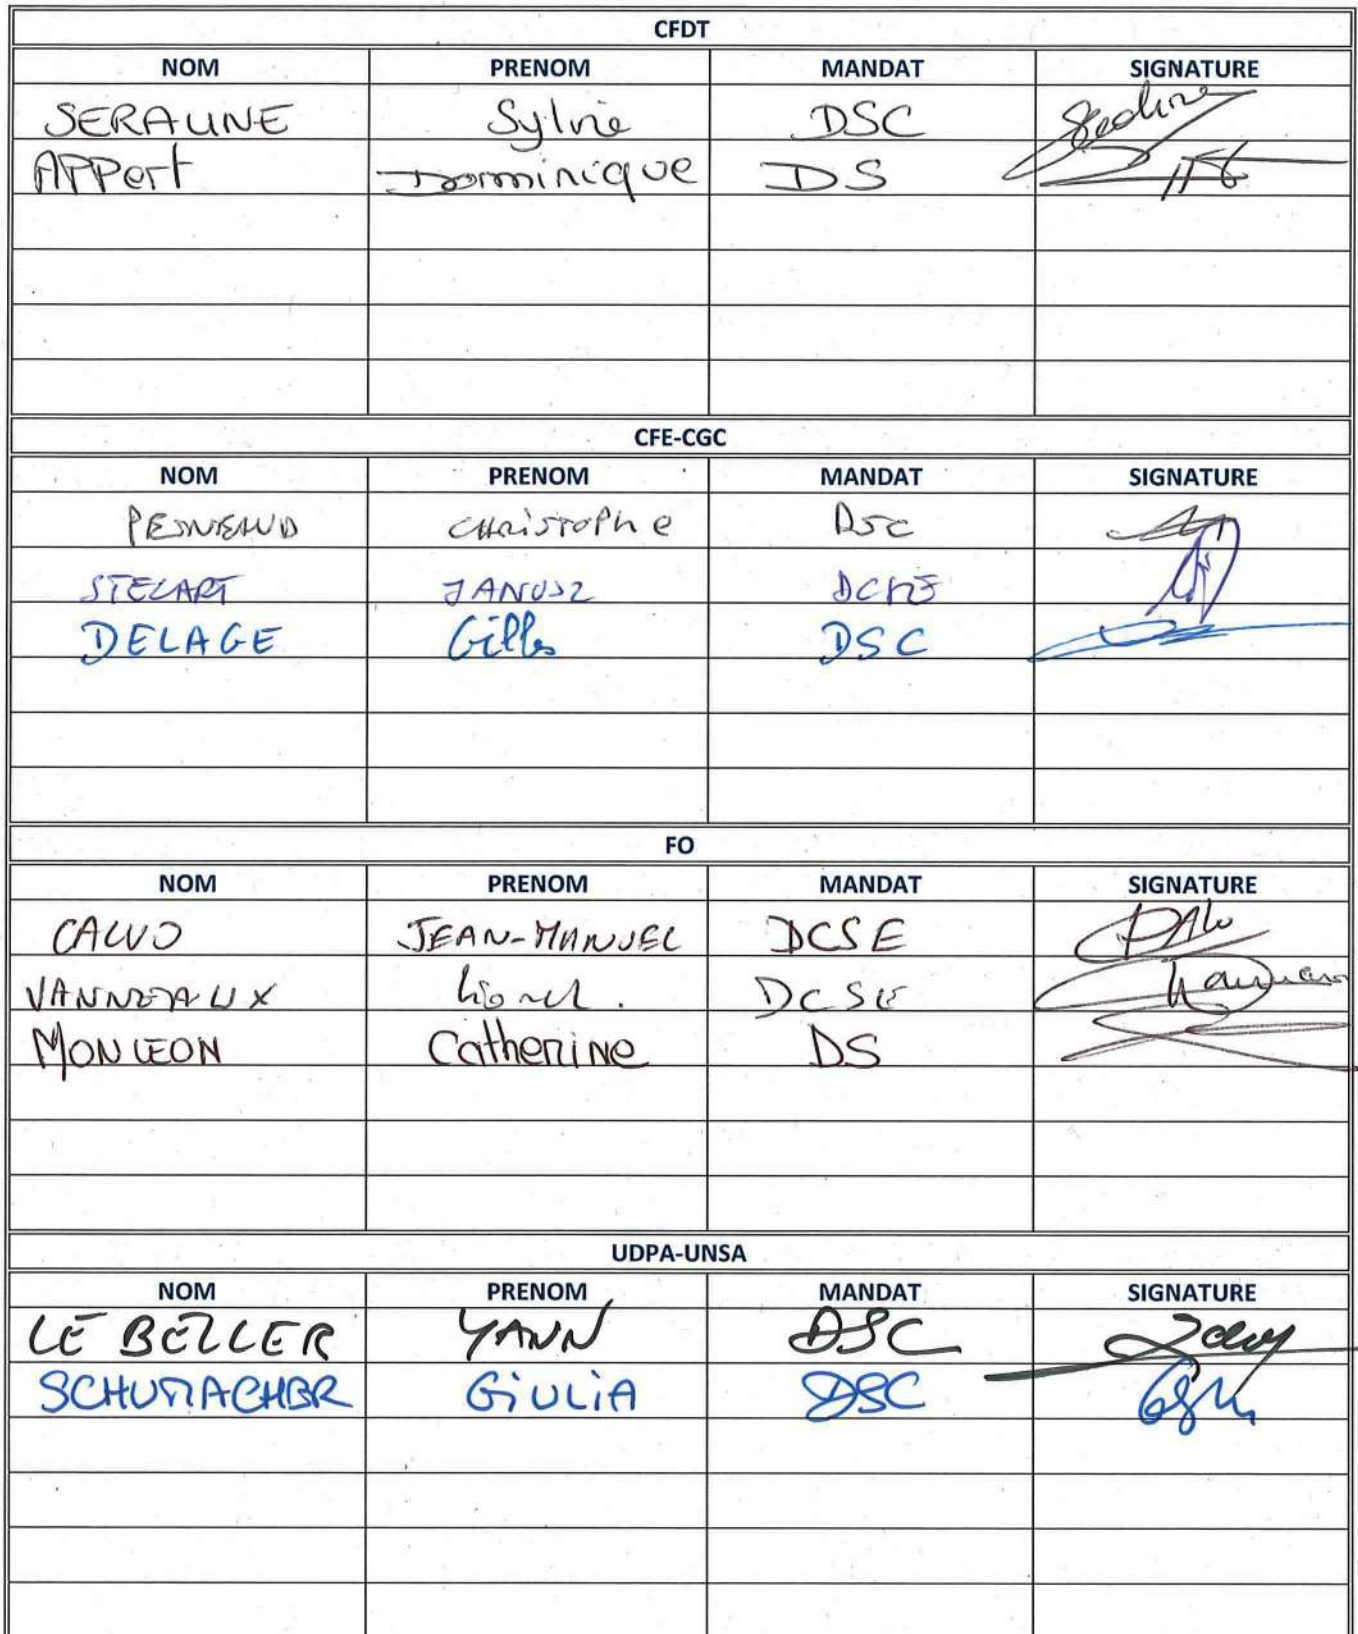 CFDT
NOM PRENOM MANDAT SIGNATURE
SERALINE Sylvie DSC
APPert Dominique DS
CFE-CGC
NOM PRENOM MANDAT SIGNATURE
CHRISTOPHE DSC
STECART JANUSZ
DELAGE Gilles DSC
FO
NOM PRENOM MANDAT SIGNATURE
CALVO JEAN-MANUEL DCSE
VANNEAUX Lionel. DCSE
MONLEON Catherine DS
UDPA-UNSA
NOM PRENOM MANDAT SIGNATURE
LE BELLER YANN DSC
SCHUMACHER GiULiA DSC